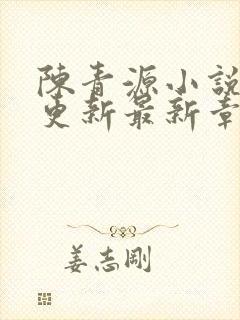 陳青源小說
更新最新章
姜志剛